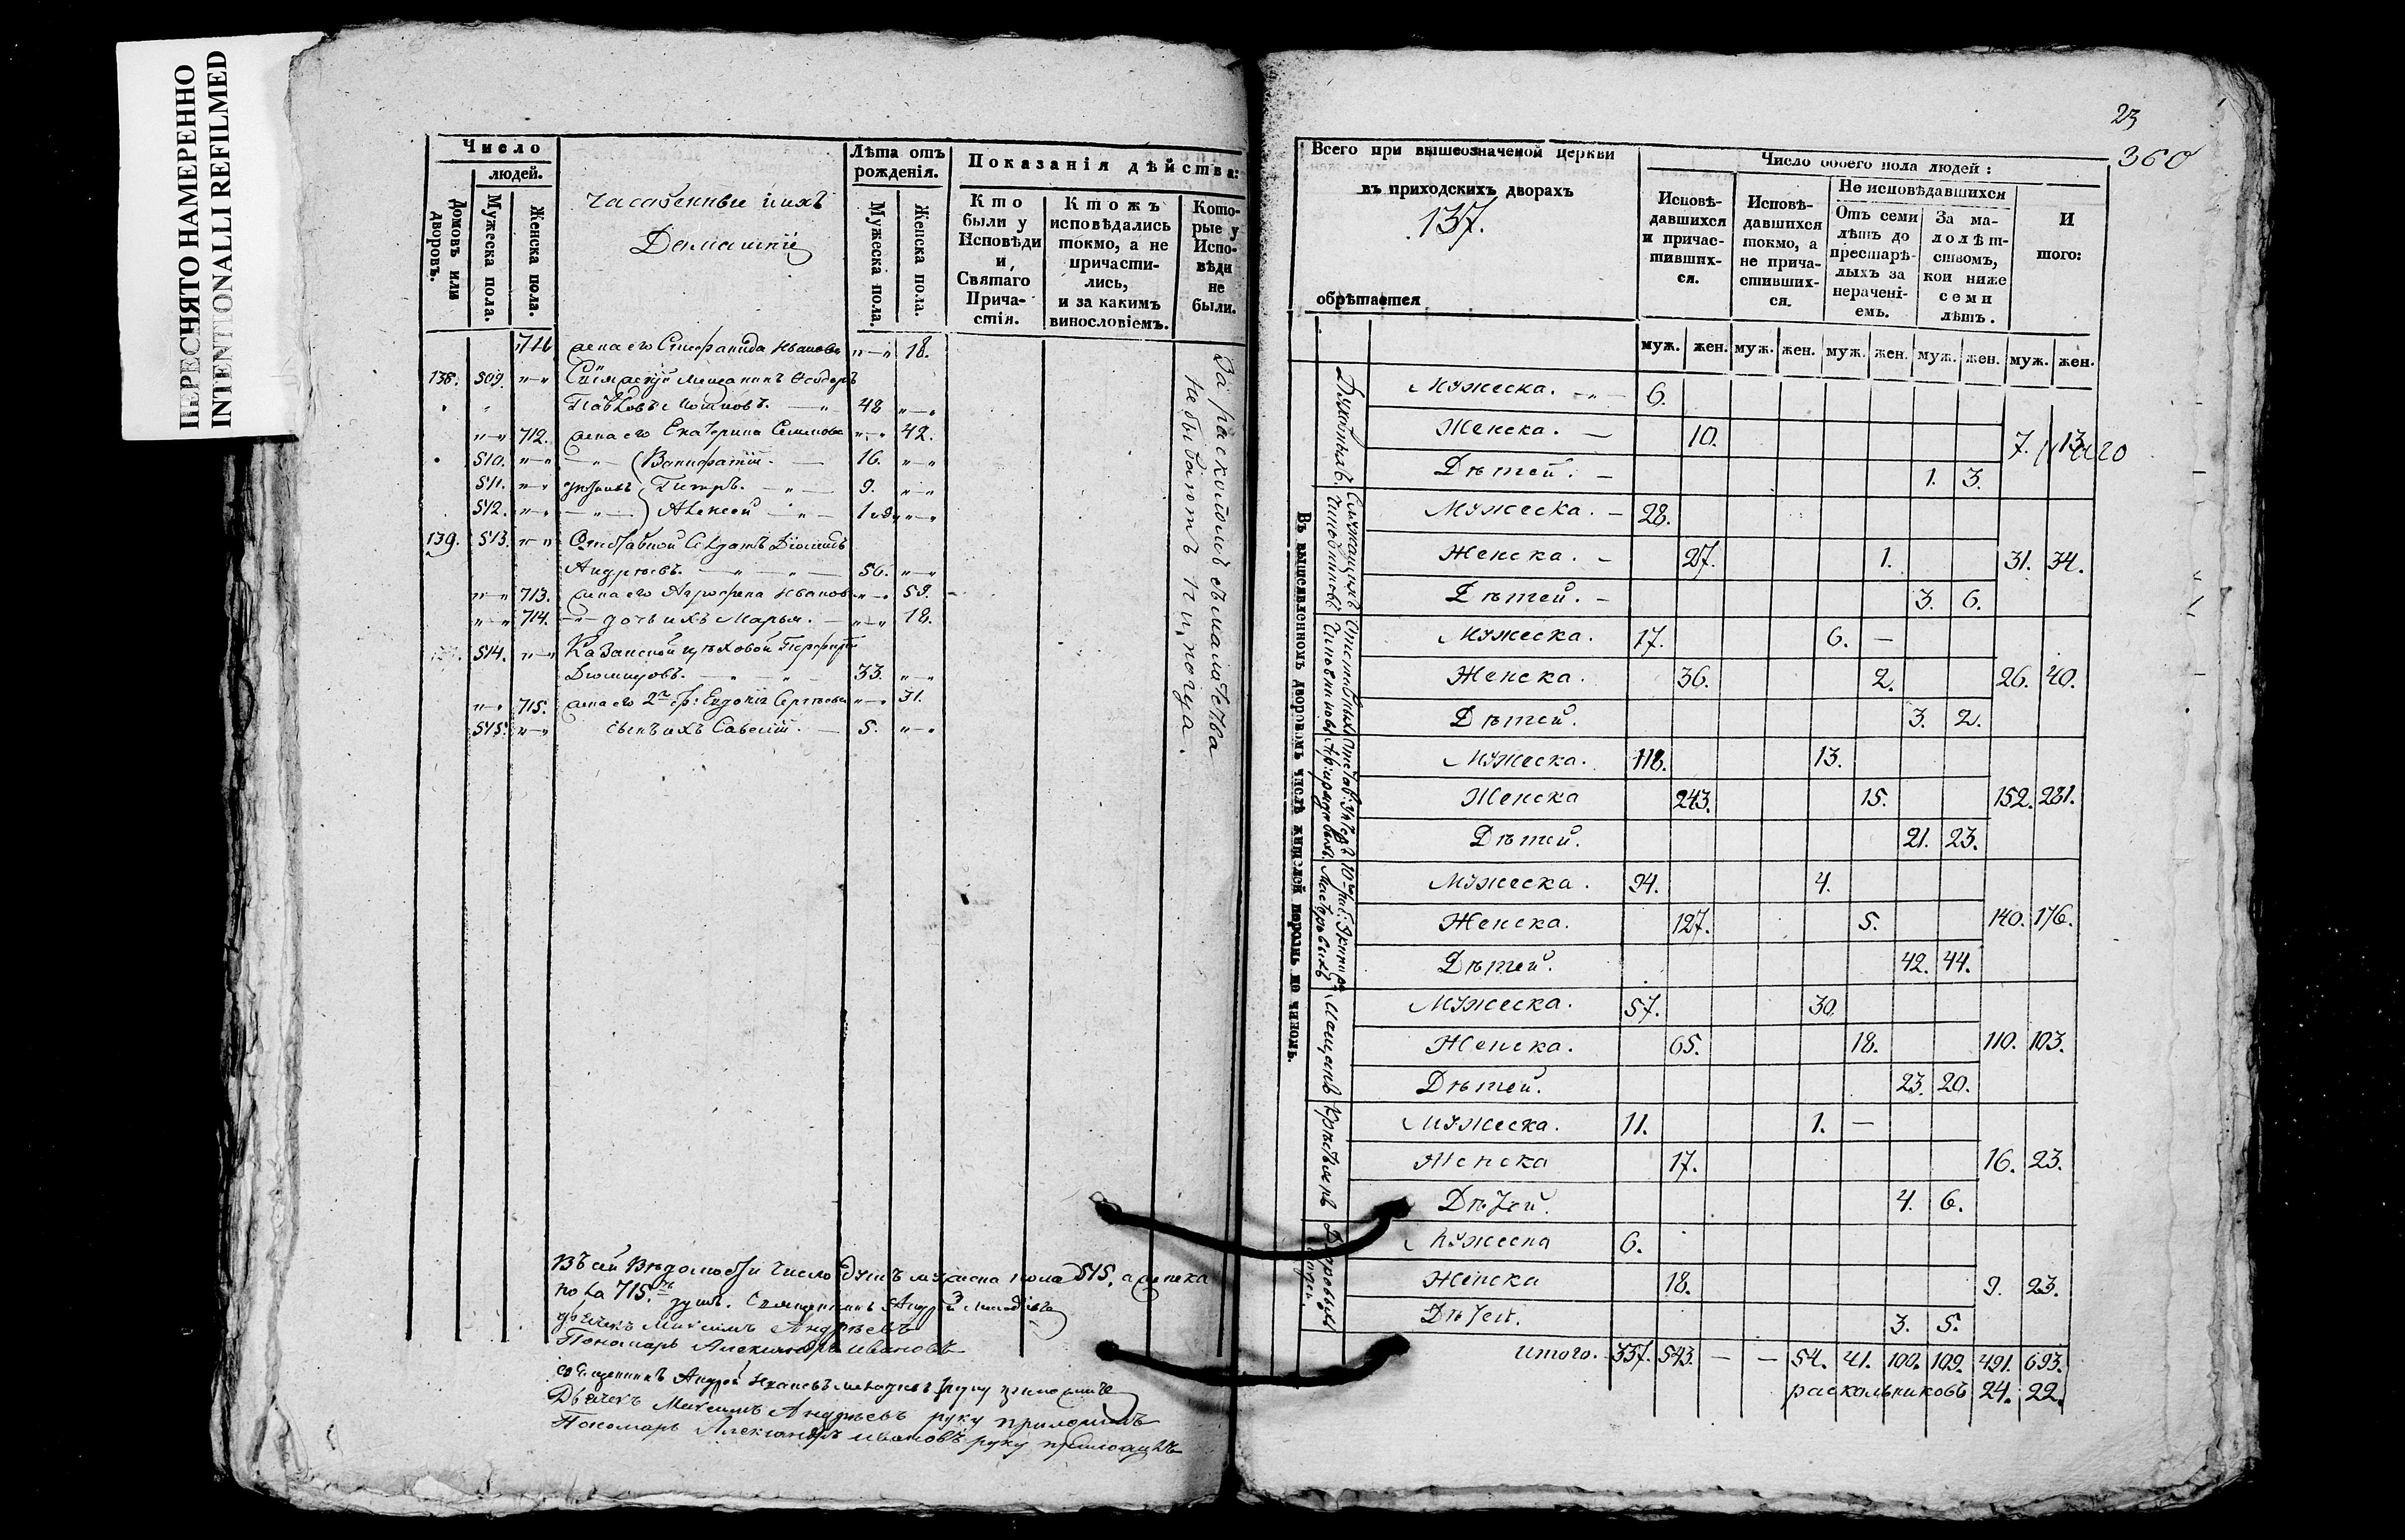 ПЕРЕСНЯТО НАМЕРЕННО
INTENTIONALLI REFILMED
Число
людей.
Домовъ или дворовъ.
Мужеска пола.
Женска пола.
Домашнїи
Лѣта отъ рожденія.
Мужеска пола.
Женска пола.
Показанія дѣйства:
Кто были у Исповѣди и Святаго Причастія.
Ктожъ исповѣдались токмо, а не причастились, и за какимъ винословіемъ.
Которые у Исповѣди не были.
жена его Стефанида Иванова 18.
138. 509. мещанинъ Ѳеодоръ
48
712. жена его Екатерина Семенова 42.
510. 16.
511. Петръ. 9.
512. Алексей 1
139. 513. Отставной Солдатъ Дїомидъ
Андреевъ. 56.
713. жена его Агрофена Иванов 59.
714. дочь ихъ Марья. 18.
514. Казанской цеховой Перфирїй
Дїомидовъ. 33.
715. жена его 2 бр: Евдокїя Сергѣева 31.
515. сынъ ихъ Савелїй. 5.
За расколомъ
не бываютъ никогда.
Въ сей Вѣдомости число душъ мужеска пола 515. а женска
пола 715. душъ. Священникъ Андрей
дьячекъ Максимъ Андреевъ
Пономарь Александръ Ивановъ
священникъ Андрей Ивановъ руку приложилъ
Дьячекъ Максимъ Андреевъ руку приложилъ
Пономарь Александръ Ивановъ руку приложилъ
23
360
Всего при вышеозначеной церкви
въ приходскихъ дворахъ
137.
обрѣтается
Число обоего пола людей:
Исповѣдавшихся и причастившихся.
Исповѣдавшихся токмо, а не причастившихся.
Не исповѣдавшихся
Отъ семи лѣтъ до престарѣлыхъ за нераченіемъ.
За малолѣтствомъ, кои ниже семи лѣтъ.
И того:
муж. жен. муж. жен. муж. жен. муж. жен. муж. жен.
Въ вышеявленномъ дворовомъ числѣ жителей порознь по чиномъ.
Духовныхъ.
Мужеска. 6.
Женска. 10. 7. 13
Дѣтей. 1. 3.
Служащихъ Чиновниковъ
Мужеска. 28.
Женска. 27. 1. 31. 34.
Дѣтей. 3. 6.
Отставныхъ Чиновниковъ
Мужеска. 17. 6. —
Женска. 36. 2. 26. 40.
Дѣтей. 3. 2.
Мужеска. 118. 13.
Женска 243. 15. 152. 281.
Дѣтей. 21. 23.
Мастеровыхъ
Мужеска. 94. 4.
Женска. 127. 5. 140. 176.
Дѣтей. 42. 44.
Мещанъ
Мужеска. 57. 30.
Женска. 65. 18. 110. 103.
Дѣтей. 23. 20.
Крестьянъ
Мужеска. 11. 1. —
Женска 17. 16. 23.
Дѣтей. 4. 6.
Дворовыхъ людей
Мужеска 6.
Женска 18. 9. 23.
Дѣтей. 3. 5.
Итого. 337. 543. — — 54. 41. 100. 109. 491. 693.
раскольниковъ 24. 22.